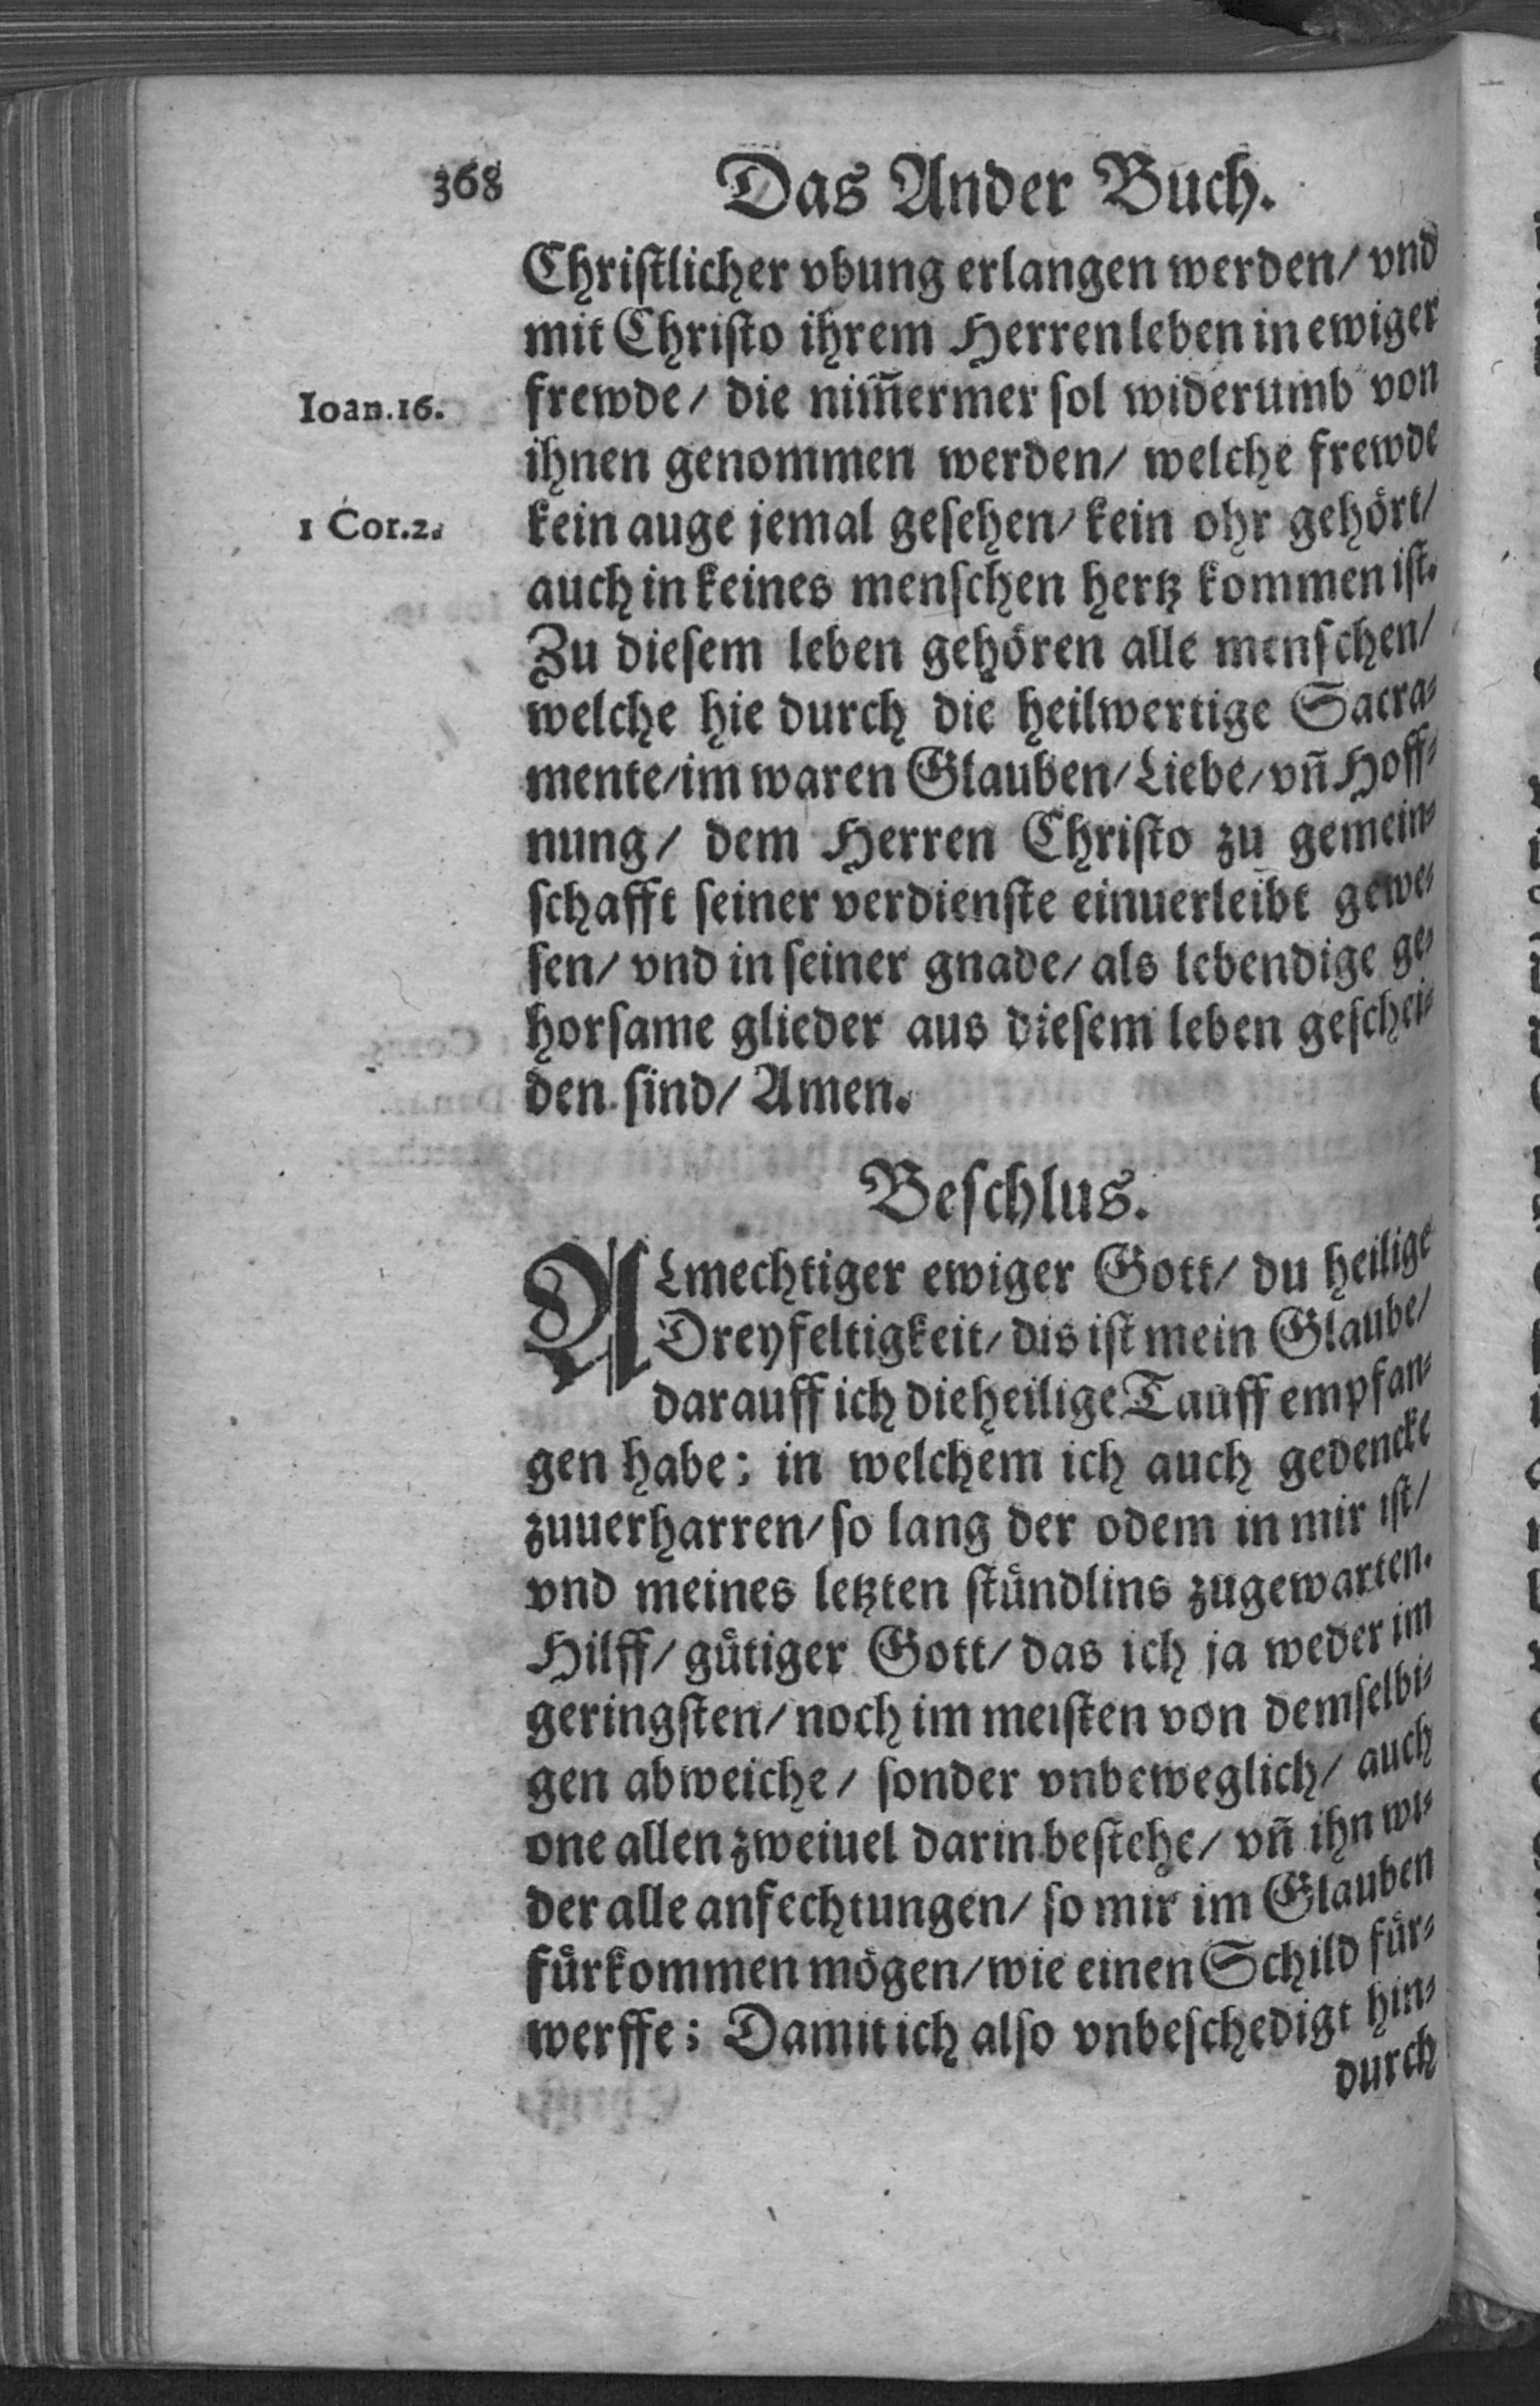 368 Das Ander Buch.
Christlicher vbung erlangen werden/ vnd
mit Christo ihrem Herren leben in ewiger
Ioan.16. frewde/ die nim̃ermer sol widerumb von
ihnen genommen werden/ welche frewde
1 Cor.2. kein auge jemal gesehen/ kein ohr gehört/
auch in keines menschen hertz kommen ist.
Zu diesem leben gehören alle menschen/
welche hie durch die heilwertige Sacra-
mente/ im waren Glauben/ Liebe/ vñ Hoff-
nung/ dem Herren Christo zu gemein-
schafft seiner verdienste einuerleibt gewe-
sen/ vnd in seiner gnade/ als lebendige ge-
horsame glieder aus diesem leben geschei-
den sind/ Amen.
Beschlus.
ALmechtiger ewiger Gott/ du heilige
Dreyfeltigkeit/ dis ist mein Glaube/
darauff ich die heilige Tauff empfan-
gen habe: in welchem ich auch gedencke
zuuerharren/ so lang der odem in mir ist/
vnd meines letzten stündlins zugewarten.
Hilff/ gütiger Gott/ das ich ja weder im
geringsten/ noch im meisten von demselbi-
gen abweiche/ sonder vnbeweglich/ auch
one allen zweiuel darin bestehe/ vñ ihn wi-
der alle anfechtungen/ so mir im Glauben
fürkommen mögen/ wie einen Schild für-
werffe: Damit ich also vnbeschedigt hin-
durch